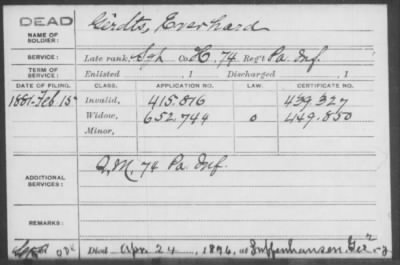 DEAD
NAME OF SOLDIER: Girdts, Everhard
SERVICE: Late rank, Sgt Co. H, 74 Reg't Pa. Inf.
TERM OF SERVICE: Enlisted , 1 Discharged , 1
DATE OF FILING. CLASS. APPLICATION NO. LAW. CERTIFICATE NO.
1881-Feb. 15 Invalid, 415.816 439.327
Widow, 652.744 o 449.850
Minor,
ADDITIONAL SERVICES: Q.M. 74 Pa. Inf.
REMARKS:
Died Apr. 24, 1896, at Zuffenhausen, Ger